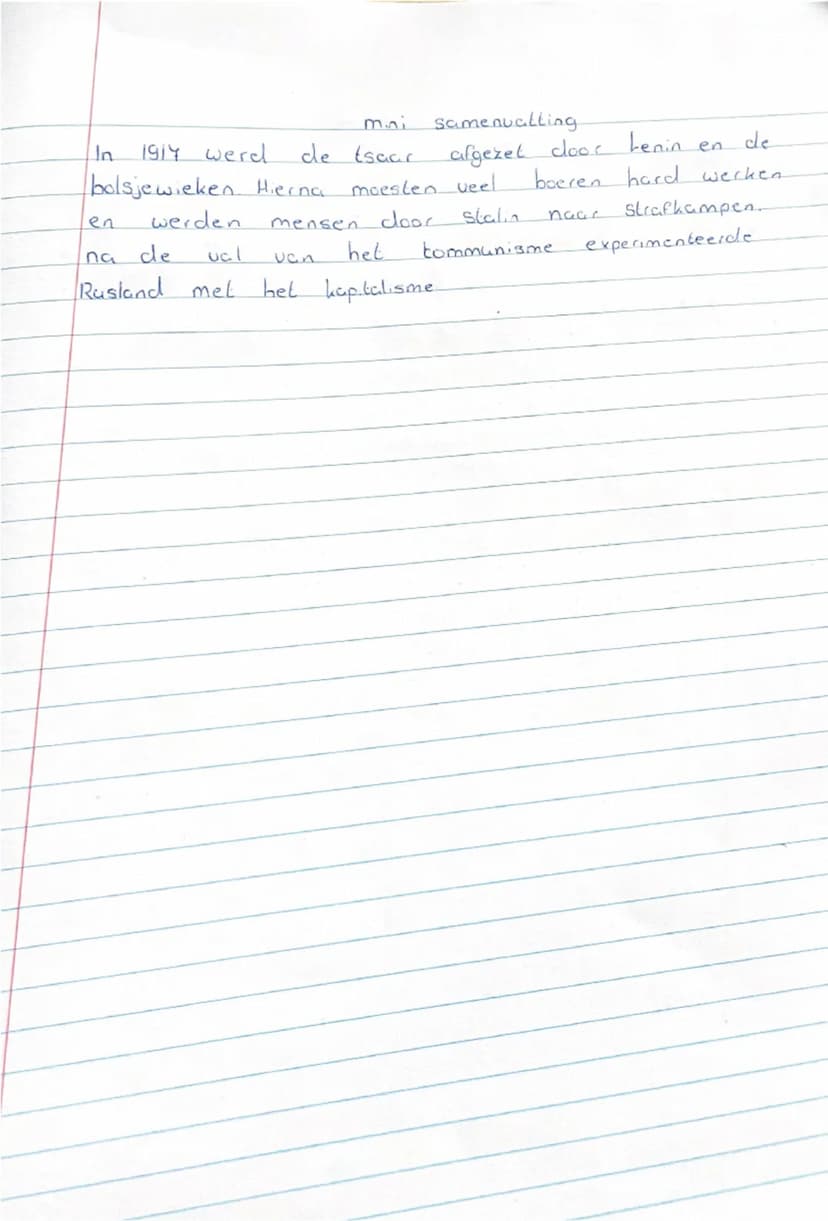 mini samenvatting
In 1917 werd de tsaar afgezet door Lenin en de
bolsjewieken Hierna moesten veel boeren hard werken
en werden mensen door Stalin naar Strafkampen.
na de val van het kommunisme experimenteerde
Rusland met het kapitalisme